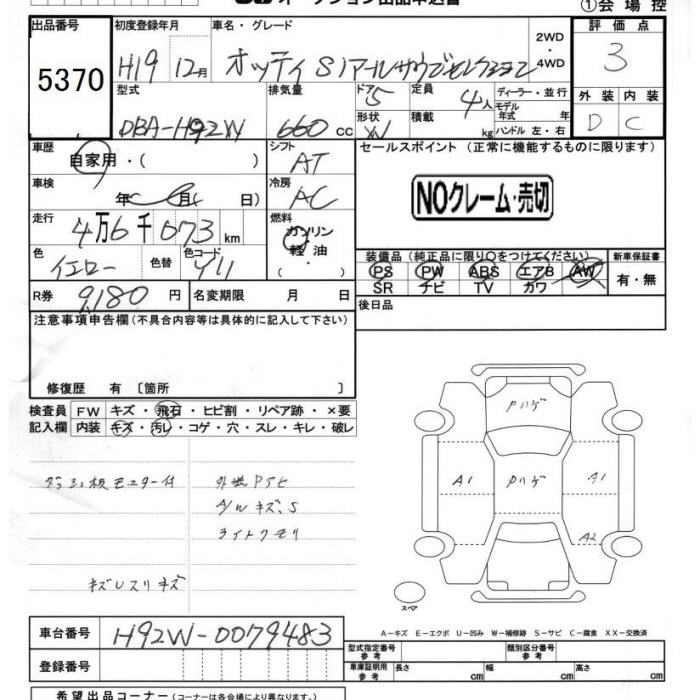 オークション出品申込書
①会場控
出品番号 初度登録年月 車名・グレード 2WD・4WD 評価点
5370 H19 12月 オッティ 3
型式 排気量 ドア 5 定員 4人 ディーラー・並行 外装 内装
モデル年式 年式
DBA-H92W 660 cc 形状 W 積載 kg ハンドル 左・右 D C
車歴 シフト セールスポイント (正常に機能するものに限ります)
自家用・( ) AT
車検 冷房
年 月( 日) AC NOクレーム・売切
走行 燃料
4万6千073 km ガソリン
軽油
色 色替 色コード ・( )
イエロー Y11
装備品 (純正品に限り○をつけてください) 新車保証書
PS PW ABS エアB AW 有・無
SR ナビ TV カワ
R券 9,180 円 名変期限 月 日 後日品
注意事項申告欄 (不具合内容等は具体的に記入して下さい)
修復歴 有 〔箇所 〕
検査員 FW キズ・飛石・ヒビ割・リペア跡・×要
記入欄 内装 キズ・汚レ・コゲ・穴・スレ・キレ・破レ
Pハゲ
A1 Pハゲ A1
A/W キズ、S
ライトクモリ A2
キズUスリキズ
スペア
A-キズ E-エクボ U-凹み W-補修跡 S-サビ C-腐食 XX-交換済
車台番号 H92W-0079483
型式指定番号 参考 類別区分番号 参考
登録番号 車庫証明用 参考 長さ cm 幅 cm 高さ cm
希望出品コーナー (コーナーは各会場により異なります)